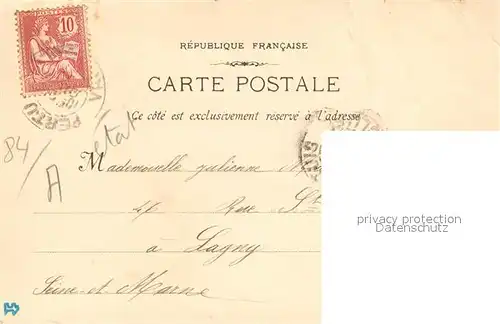 10
POSTES
RÉPUBLIQUE FRANÇAISE
CARTE POSTALE
Ce côté est exclusivement réservé à l'adresse
PERTU
84/
A
état
Mademoiselle Julienne
47 Rue St
à Lagny
Seine-et-Marne
privacy protection
Datenschutz